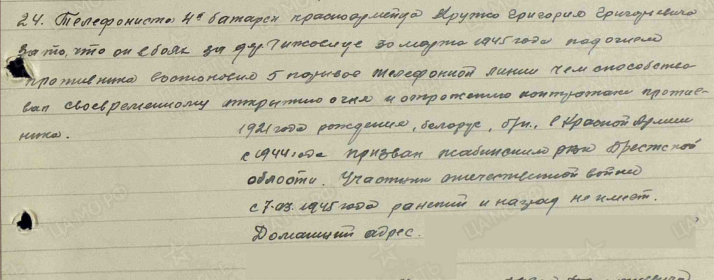 24. Телефониста 4й батареи красноармейца Кружко Григория Григорьевича
За то, что он в боях за дер. 30 марта 1945 года под огнем
противника востоновил 5 порывов телефонной линии чем способство
вал своевременному открытию огня и отражению контратаки против-
ника.
1921 года рождения, белорус, б/п., в Красной Армии
с 1944 года призван Жабинским рвк Брестской
области. Участник отечественной войны
с 7.03.1945 года ранений и наград не имеет.
Домашний адрес.